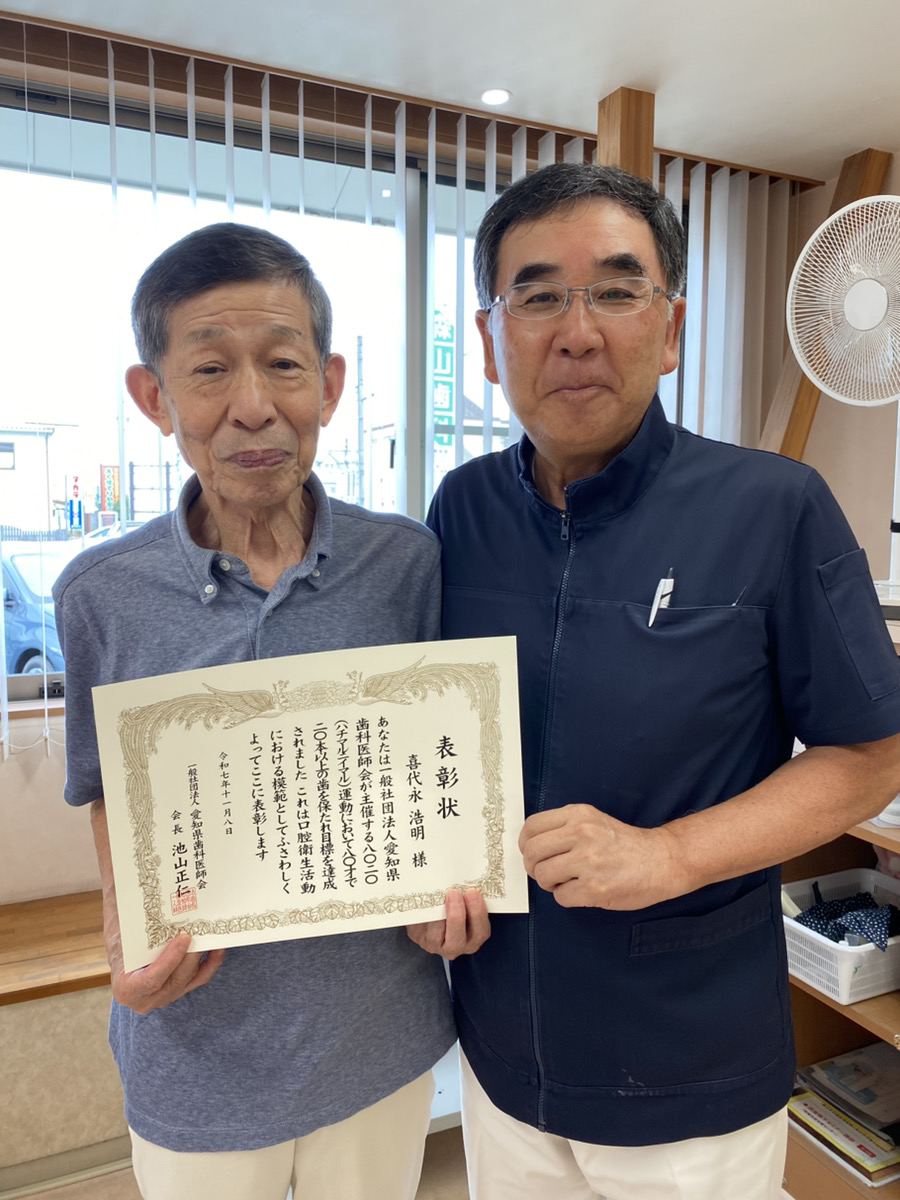 表彰状
喜代永 浩明 様
あなたは一般社団法人愛知県
歯科医師会が主催する八〇二〇
(ハチマルニイマル)運動において八〇才で
二〇本以上の歯を保たれ目標を達成
されました これは口腔衛生活動
における模範としてふさわしく
よってここに表彰します
令和七年十一月八日
一般社団法人 愛知県歯科医師会
会長 池山正仁
山歯